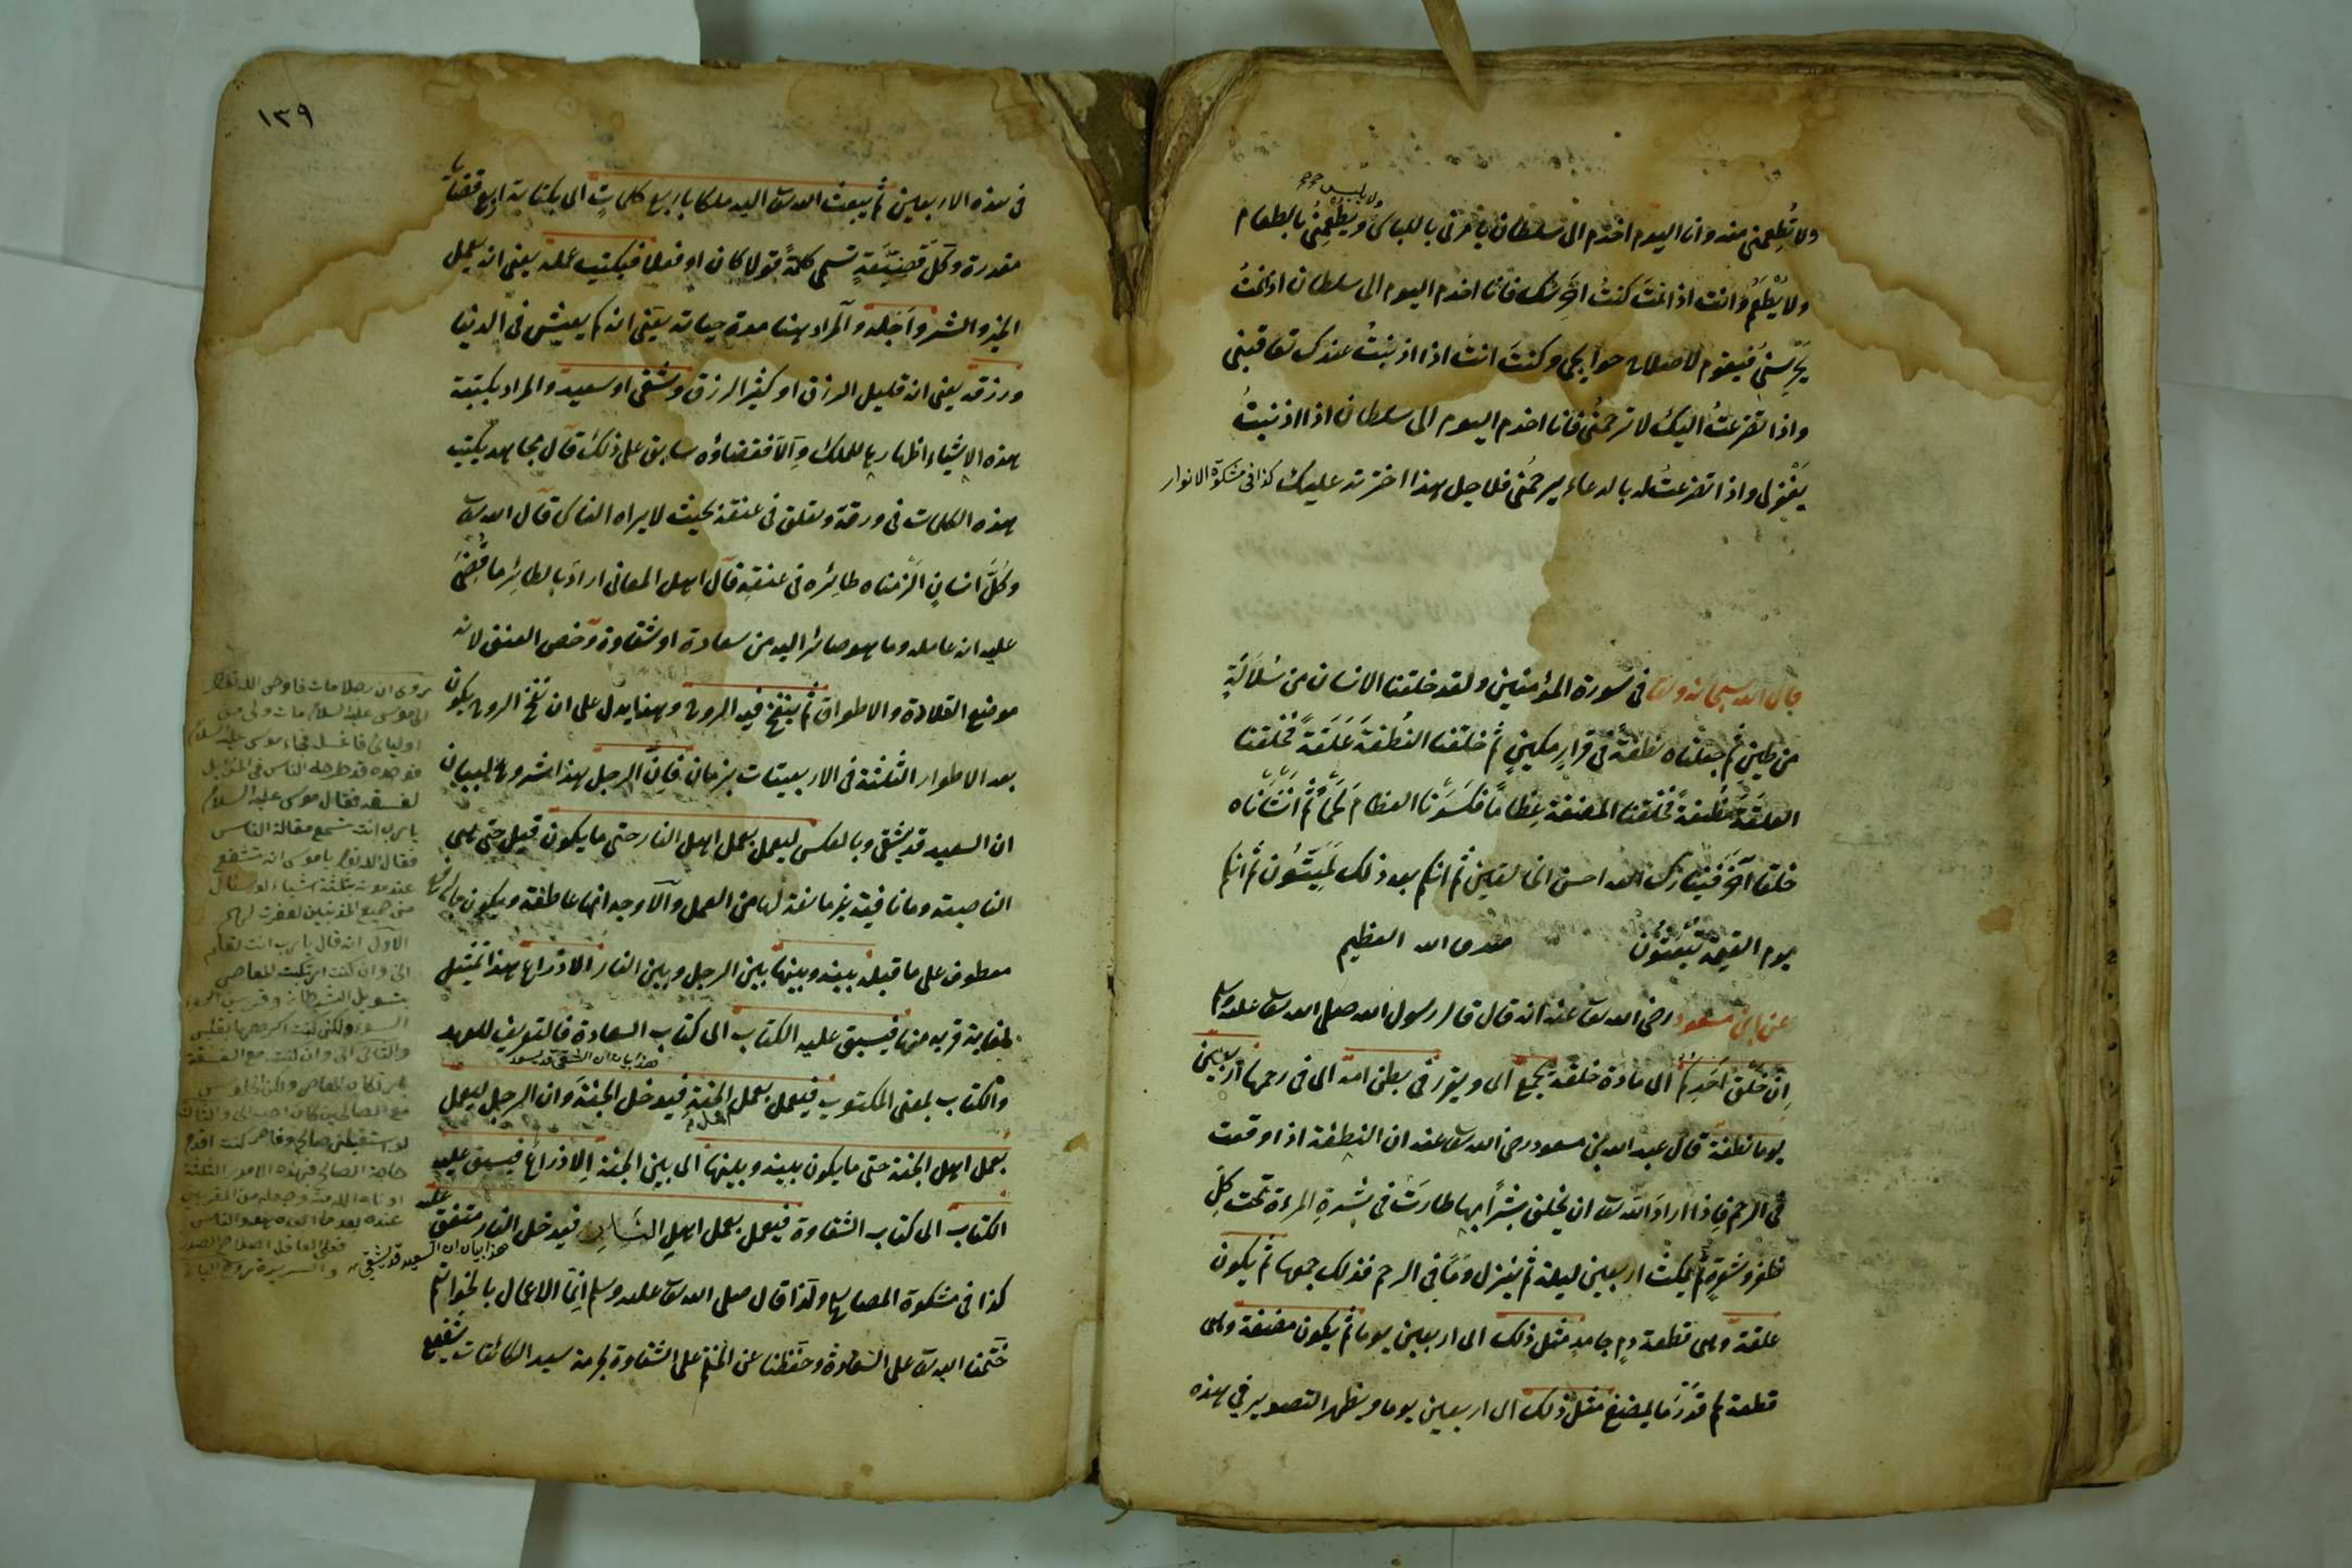 ولا يلبس
ولا تُطعِمنى منه وانا اليوم اخدم الى سلطان يأمرنى باللباس ويُطعِمنى بالطعام
ولا يَطْعَمُ وانت اذا نمتَ كنتُ احرسك فانا اخدم اليوم الى سلطان اذا نمتُ
يحرسنى فيقوم لاصلاح حوايجى وكنتَ انت اذا اذنبتُ عندك تعاقبنى
واذا تضرعتُ اليك لا ترحمنى فانا اخدم اليوم الى سلطان اذا اذنبتُ
يغفرلى واذا تضرعتُ له بالدعاء يرحمنى فلاجل هذا اخترته عليك كذا فى مشكوة الانوار
قال الله سبحانه وتعا فى سورة المؤمنين ولقد خلقنا الانسان من سُلالَةٍ
من طينٍ ثم جعلناه نطفةً فى قرارٍ مكينٍ ثم خلقنا النُطفةَ عَلَقَةً فخلقنا
العلقَةَ مضغةً فخلقنا المضغة عِظاماً فكسَونا العظامَ لحماً ثم انشأناه
خلقا آخَرَ فتبارك الله احسن الخالقين ثم انكم بعد ذلك لَمَيّتُون ثم انكم
يوم القيمة تُبعَثُون صدق الله العظيم
عن ابن مسعود رضى الله تعا عنه انه قال قال رسول الله صلى الله تعا عليه وسلم
اِن خلق اَحَدِكُم اى مادة خلقه يجمع اى ويقرّ فى بطن امه اى فى رحمها اربعين
يوما نطفة قال عبد الله بن مسعود رضى الله تعا عنه ان النطفة اذا وقعت
فى الرحم فاِذا ارادَ الله تعا ان يخلق بشراً بها طارَت فى بشرةِ المرءة تحت كلّ
ظفرٍ وشعرةٍ ثم يمكث اربعين ليلة ثم ينزل دَمًا فى الرحم فذلك جمعها ثم يكون
علقة وهى قطعة دمٍ جامدٍ مثل ذلك اى اربعين يوما ثم يكون مضغة وهى
قطعة لحم قدرَ ما يمضغ مثل ذلك اى اربعين يوما ويظهر التصوير فى هذه
١٣٩
فى هذه الاربعين ثم يبعث الله تعا اليه ملكا باربع كلماتٍ اى بكتابة اربع قضايا
مقدرة وكلّ قضيّةٍ تسمى كلمةً قولا كان او فعلا فيكتب عمله يعنى انه يعمل
الخير والشر واَجَله والمراد هنا مدة حياته يعنى انه كم يعيش فى الدنيا
ورزقه يعنى انه قليل الرزق او كثير الرزق وشقى او سعيد والمراد بكتبة
هذه الاشياء اظهارها للملك والّا فقضاؤه سابق على ذلك قال مجاهد يكتب
هذه الكلمات فى ورقة وتعلق فى عنقه بحيث لا يراه الناس قال الله تعا
وكلَّ انسانٍ الزمناه طائره فى عنقهِ قال اهل المعانى ارادَ بالطائرِ ما قُضِىَ
عليه انه عامله وما هو صائر اليه من سعادة او شقاوة وخص العنق لانه
موضع القلادة والاطواق ثم ينفخ فيه الروح وهذا يدل على ان نفخ الروح يكون
بعد الاطوار الثلثة فى الاربعينات بزمان فانّ الرجل هذا شروع لبيان
ان السعيد قد يشقى وبالعكس ليعمل بعمل اهل النار حتى ما يكون قيل حتى هى
الناصبة وما نافية غير مانعة لها من العمل والّا وجه انها عاطفة ويكون بالرفع
معطوف على ما قبله بينه وبينها بين الرجل وبين النار الّا ذراع هذا تمثيل
لغاية قربه منها فيسبق عليه الكتاب اى كتاب السعادة فالتعريف للعهد
هذا بيان ان الشقى قد يسعد
والكتاب بمعنى المكتوب فيعمل بعمل اهل الجنةِ فيدخل الجنّةَ وان الرجل ليعمل
بعمل اهل الجنة حتى ما يكون بينه وبينها اى بين الجنّةِ اِلا ذراعٌ فيسبق عليه
الكتاب اى كتاب الشقاوة فيعمل بعمل اهل النارِ فيدخل النار متفق عليه
هذا بيان ان السعيد قد يشقى
كذا فى مشكوة المصابيح ولذا قال صلى الله تعا عليه وسلم اِنّما الاعمال بالخواتم
خَتمنا الله تعا على السّعادة وحَفَظنا عن الختم على الشقاوة بحرمة سيد الكائنات شفيع
يروى ان رجلا مات فاوحى الله تعا
الى موسى عليه السلام مات ولى من
اوليائى فاغسله فجاء موسى عليه السلام
فوجده قد طرحه الناس فى المزابل
لفسقه فقال موسى عليه السلام
يا رب انت تسمع مقالة الناس
فقال الله تعا يا موسى انه تشفع
عند موته بثلثة اشياء لو سأل
منى جميع المذنبين لغفرت لهم
الاول انه قال يا رب انت تعلم
انى وان كنت ارتكبت المعاصى
بتسويل الشيطان وقرين
السوء ولكنى كنت اكرهها بقلبى
والثانى انى وان كنت مع الفسقة
بارتكاب المعاصى ولكن الجلوس
مع الصالحين كان احب الى والثالث
لو استقبلنى صالح وفاجر كنت اقدم
حاجة الصالح فبهذه الامور الثلثة